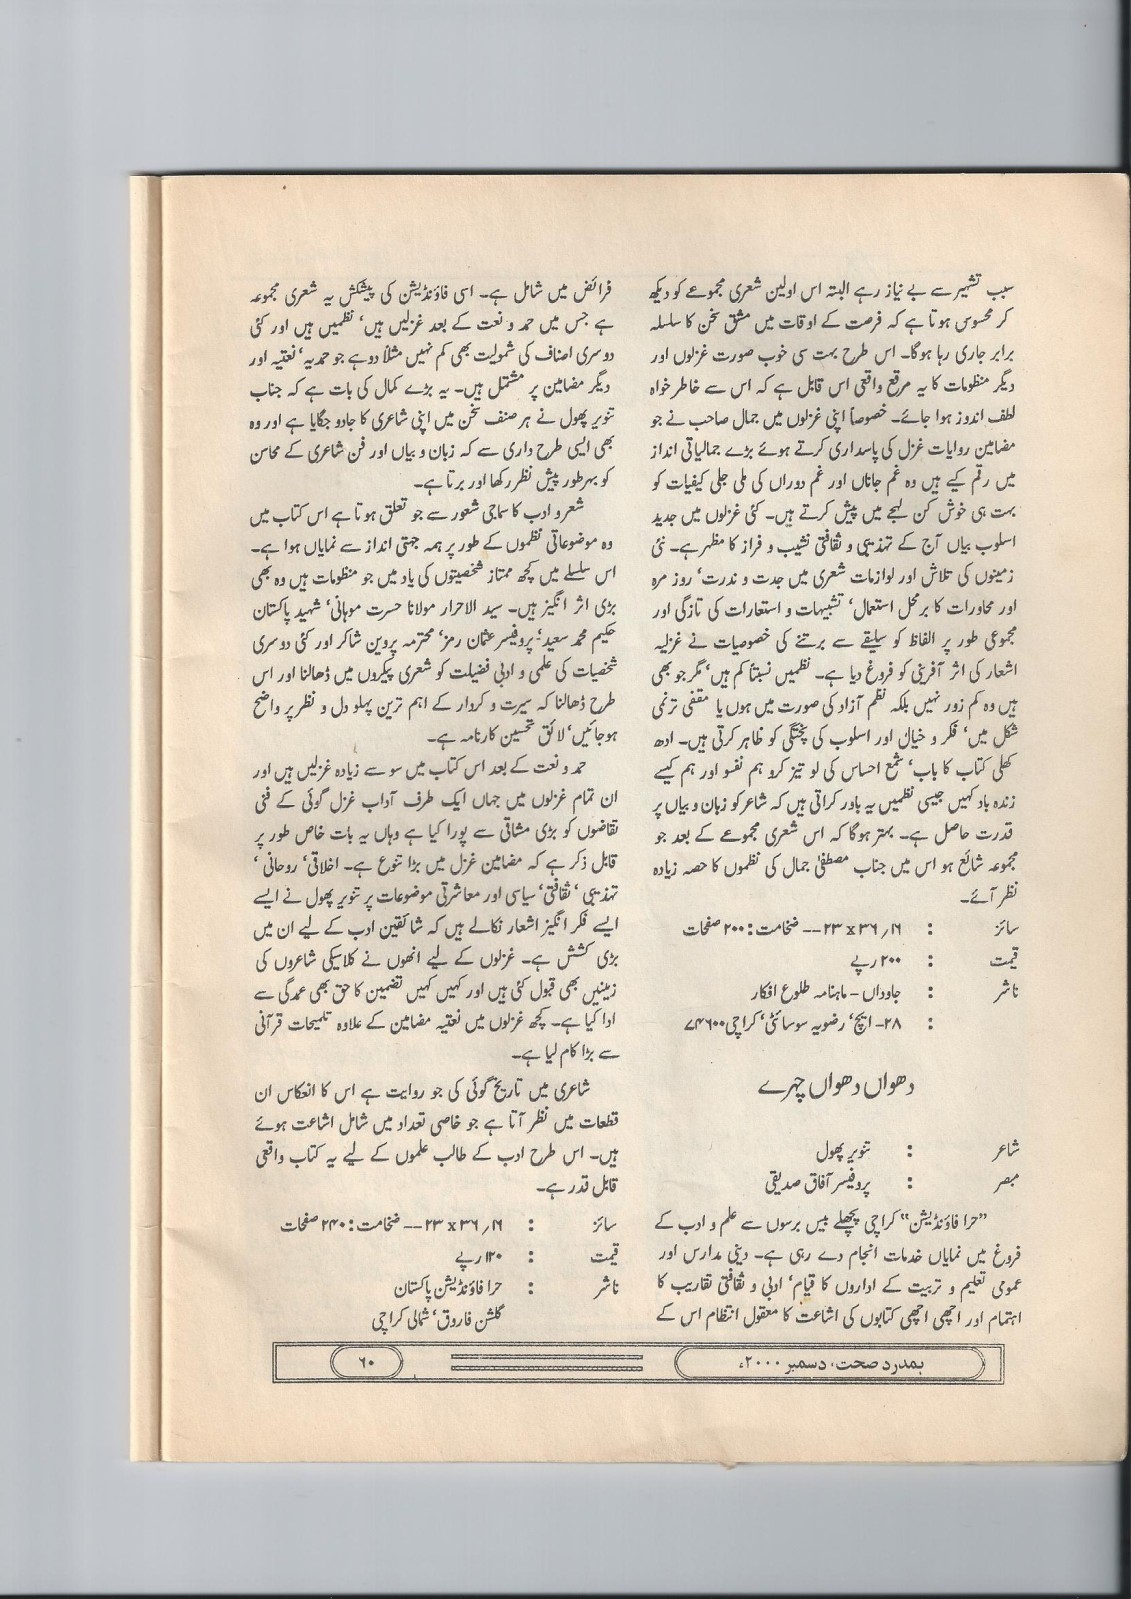 سبب تشہیر سے بے نیاز رہے البتہ اس اولین شعری مجموعے کو دیکھ
کر محسوس ہوتا ہے کہ فرصت کے اوقات میں مشق سخن کا سلسلہ
برابر جاری رہا ہوگا۔ اس طرح بہت سی خوب صورت غزلوں اور
دیگر منظومات کا یہ مرقع واقعی اس قابل ہے کہ اس سے خاطر خواہ
لطف اندوز ہوا جائے۔ خصوصاً اپنی غزلوں میں جمال صاحب نے جو
مضامین روایات غزل کی پاسداری کرتے ہوئے بڑے جمالیاتی انداز
میں رقم کیے ہیں وہ غم جاناں اور غم دوراں کی ملی جلی کیفیات کو
بہت ہی خوش کن لہجے میں پیش کرتے ہیں۔ کئی غزلوں میں جدید
اسلوب بیاں آج کے تہذیبی و ثقافتی نشیب و فراز کا مظہر ہے۔ نئی
زمینوں کی تلاش اور لوازمات شعری میں جدت و ندرت، روز مرہ
اور محاورات کا برمحل استعمال، تشبیہات و استعارات کی تازگی اور
مجموعی طور پر الفاظ کو سلیقے سے برتنے کی خصوصیات نے غزلیہ
اشعار کی اثر آفرینی کو فروغ دیا ہے۔ نظمیں نسبتاً کم ہیں، مگر جو بھی
ہیں وہ کم زور نہیں بلکہ نظم آزاد کی صورت میں ہوں یا مقفی ترنمی
شکل میں، فکر و خیال اور اسلوب کی پختگی کو ظاہر کرتی ہیں۔ ادھ
کھلی کتاب کا باب، شمع احساس کی لو تیز کرو ہم نفسو اور ہم کیسے
زندہ باد کہیں جیسی نظمیں یہ باور کراتی ہیں کہ شاعر کو زبان و بیاں پر
قدرت حاصل ہے۔ بہتر ہوگا کہ اس شعری مجموعے کے بعد جو
مجموعہ شائع ہو اس میں جناب مصطفیٰ جمال کی نظموں کا حصہ زیادہ
نظر آئے۔
سائز : ۱۶/۳۶ x ۲۳ -- ضخامت : ۲۰۰ صفحات
قیمت : ۲۰۰ رپے
ناشر : جاوداں - ماہنامہ طلوع افکار
: ۲۸- ایچ، رضویہ سوسائٹی، کراچی ۷۴۶۰۰
دھواں دھواں چہرے
شاعر : تنویر پھول
مبصر : پروفیسر آفاق صدیقی
”حرا فاؤنڈیشن“ کراچی پچھلے بیس برسوں سے علم و ادب کے
فروغ میں نمایاں خدمات انجام دے رہی ہے۔ دینی مدارس اور
عمومی تعلیم و تربیت کے اداروں کا قیام، ادبی و ثقافتی تقاریب کا
اہتمام اور اچھی اچھی کتابوں کی اشاعت کا معقول انتظام اس کے
فرائض میں شامل ہے۔ اسی فاؤنڈیشن کی پیشکش یہ شعری مجموعہ
ہے جس میں حمد و نعت کے بعد غزلیں ہیں، نظمیں ہیں اور کئی
دوسری اصناف کی شمولیت بھی کم نہیں مثلاً دوہے جو حمدیہ، نعتیہ اور
دیگر مضامین پر مشتمل ہیں۔ یہ بڑے کمال کی بات ہے کہ جناب
تنویر پھول نے ہر صنف سخن میں اپنی شاعری کا جادو جگایا ہے اور وہ
بھی ایسی طرح داری سے کہ زبان و بیاں اور فن شاعری کے محاسن
کو بہرطور پیش نظر رکھا اور برتا ہے۔
شعر و ادب کا سماجی شعور سے جو تعلق ہوتا ہے اس کتاب میں
وہ موضوعاتی نظموں کے طور پر ہمہ جہتی انداز سے نمایاں ہوا ہے۔
اس سلسلے میں کچھ ممتاز شخصیتوں کی یاد میں جو منظومات ہیں وہ بھی
بڑی اثر انگیز ہیں۔ سید الاحرار مولانا حسرت موہانی، شہید پاکستان
حکیم محمد سعید، پروفیسر عثمان رمز، محترمہ پروین شاکر اور کئی دوسری
شخصیات کی علمی و ادبی فضیلت کو شعری پیکروں میں ڈھالنا اور اس
طرح ڈھالنا کہ سیرت و کردار کے اہم ترین پہلو دل و نظر پر واضح
ہوجائیں، لائق تحسین کارنامہ ہے۔
حمد و نعت کے بعد اس کتاب میں سو سے زیادہ غزلیں ہیں اور
ان تمام غزلوں میں جہاں ایک طرف آداب غزل گوئی کے فنی
تقاضوں کو بڑی مشاقی سے پورا کیا ہے وہاں یہ بات خاص طور پر
قابل ذکر ہے کہ مضامین غزل میں بڑا تنوع ہے۔ اخلاقی، روحانی،
تہذیبی، ثقافتی، سیاسی اور معاشرتی موضوعات پر تنویر پھول نے ایسے
ایسے فکر انگیز اشعار نکالے ہیں کہ شائقین ادب کے لیے ان میں
بڑی کشش ہے۔ غزلوں کے لیے انھوں نے کلاسیکی شاعروں کی
زمینیں بھی قبول کئی ہیں اور کہیں کہیں تضمین کا حق بھی عمدگی سے
ادا کیا ہے۔ کچھ غزلوں میں نعتیہ مضامین کے علاوہ تلمیحات قرآنی
سے بڑا کام لیا ہے۔
شاعری میں تاریخ گوئی کی جو روایت ہے اس کا انعکاس ان
قطعات میں نظر آتا ہے جو خاصی تعداد میں شامل اشاعت ہوئے
ہیں۔ اس طرح ادب کے طالب علموں کے لیے یہ کتاب واقعی
قابل قدر ہے۔
سائز : ۱۶/۳۶ x ۲۳ -- ضخامت : ۲۴۰ صفحات
قیمت : ۱۲۰ رپے
ناشر : حرا فاؤنڈیشن پاکستان
گلشن فاروق، شمالی کراچی
ہمدرد صحت، دسمبر ۲۰۰۰ء
۶۰